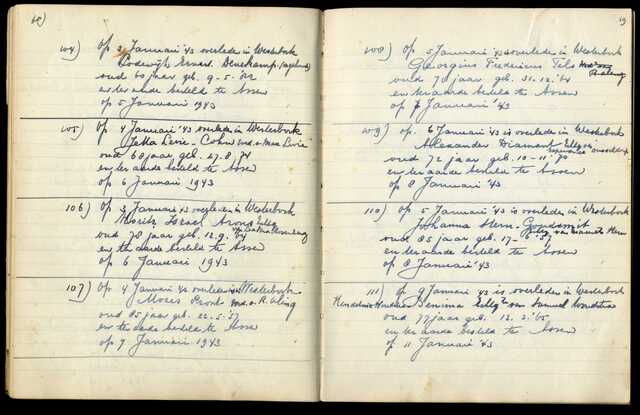 104) Op 3 Januari '43 overleden in Westerbork
Lodewijk Ernst. Denekamp.
oud 60 jaar geb. 9-5-'82
en ter aarde besteld te Assen
op 5 Januari 1943
105) Op 4 Januari '43 overleden in Westerbork
Jetta Levie - Cohn wed. v.
oud 68 jaar geb. 27.8.'74
en ter aarde besteld te Assen
op 6 Januari 1943
106) Op 3 Januari '43 overleden in Westerbork
Moritz Israel Arons
oud 78 jaar geb. 12.9.'64
en ter aarde besteld te Assen
op 6 Januari 1943
107) Op 4 Januari '43 overleden in Westerbork
Mozes
oud 85 jaar geb. 22.5.'57
en ter aarde besteld te Assen
op 7 Januari 1943
19
108) Op 5 Januari '43 overleden in Westerbork
Georgius Fredericus
oud 78 jaar geb. 31.12.'64
en ter aarde besteld te Assen
op 7 Januari '43
109) op. 6 Januari '43 is overleden in Westerbork
Alexander Diamant
oud 72 jaar geb. 10-11-'70
en ter aarde besteld te Assen
op 8 Januari '43
110) op 5 Januari '43 is overleden in Westerbork
Johanna Stern-
oud 85 jaar geb. 17-6-'57
en ter aarde besteld te Assen
op 8 Januari '43
111) op 9 Januari '43 is overleden in Westerbork
van Samuel
oud 77 jaar geb. 12.2.'65
en ter aarde besteld te Assen
op 11 Januari '43